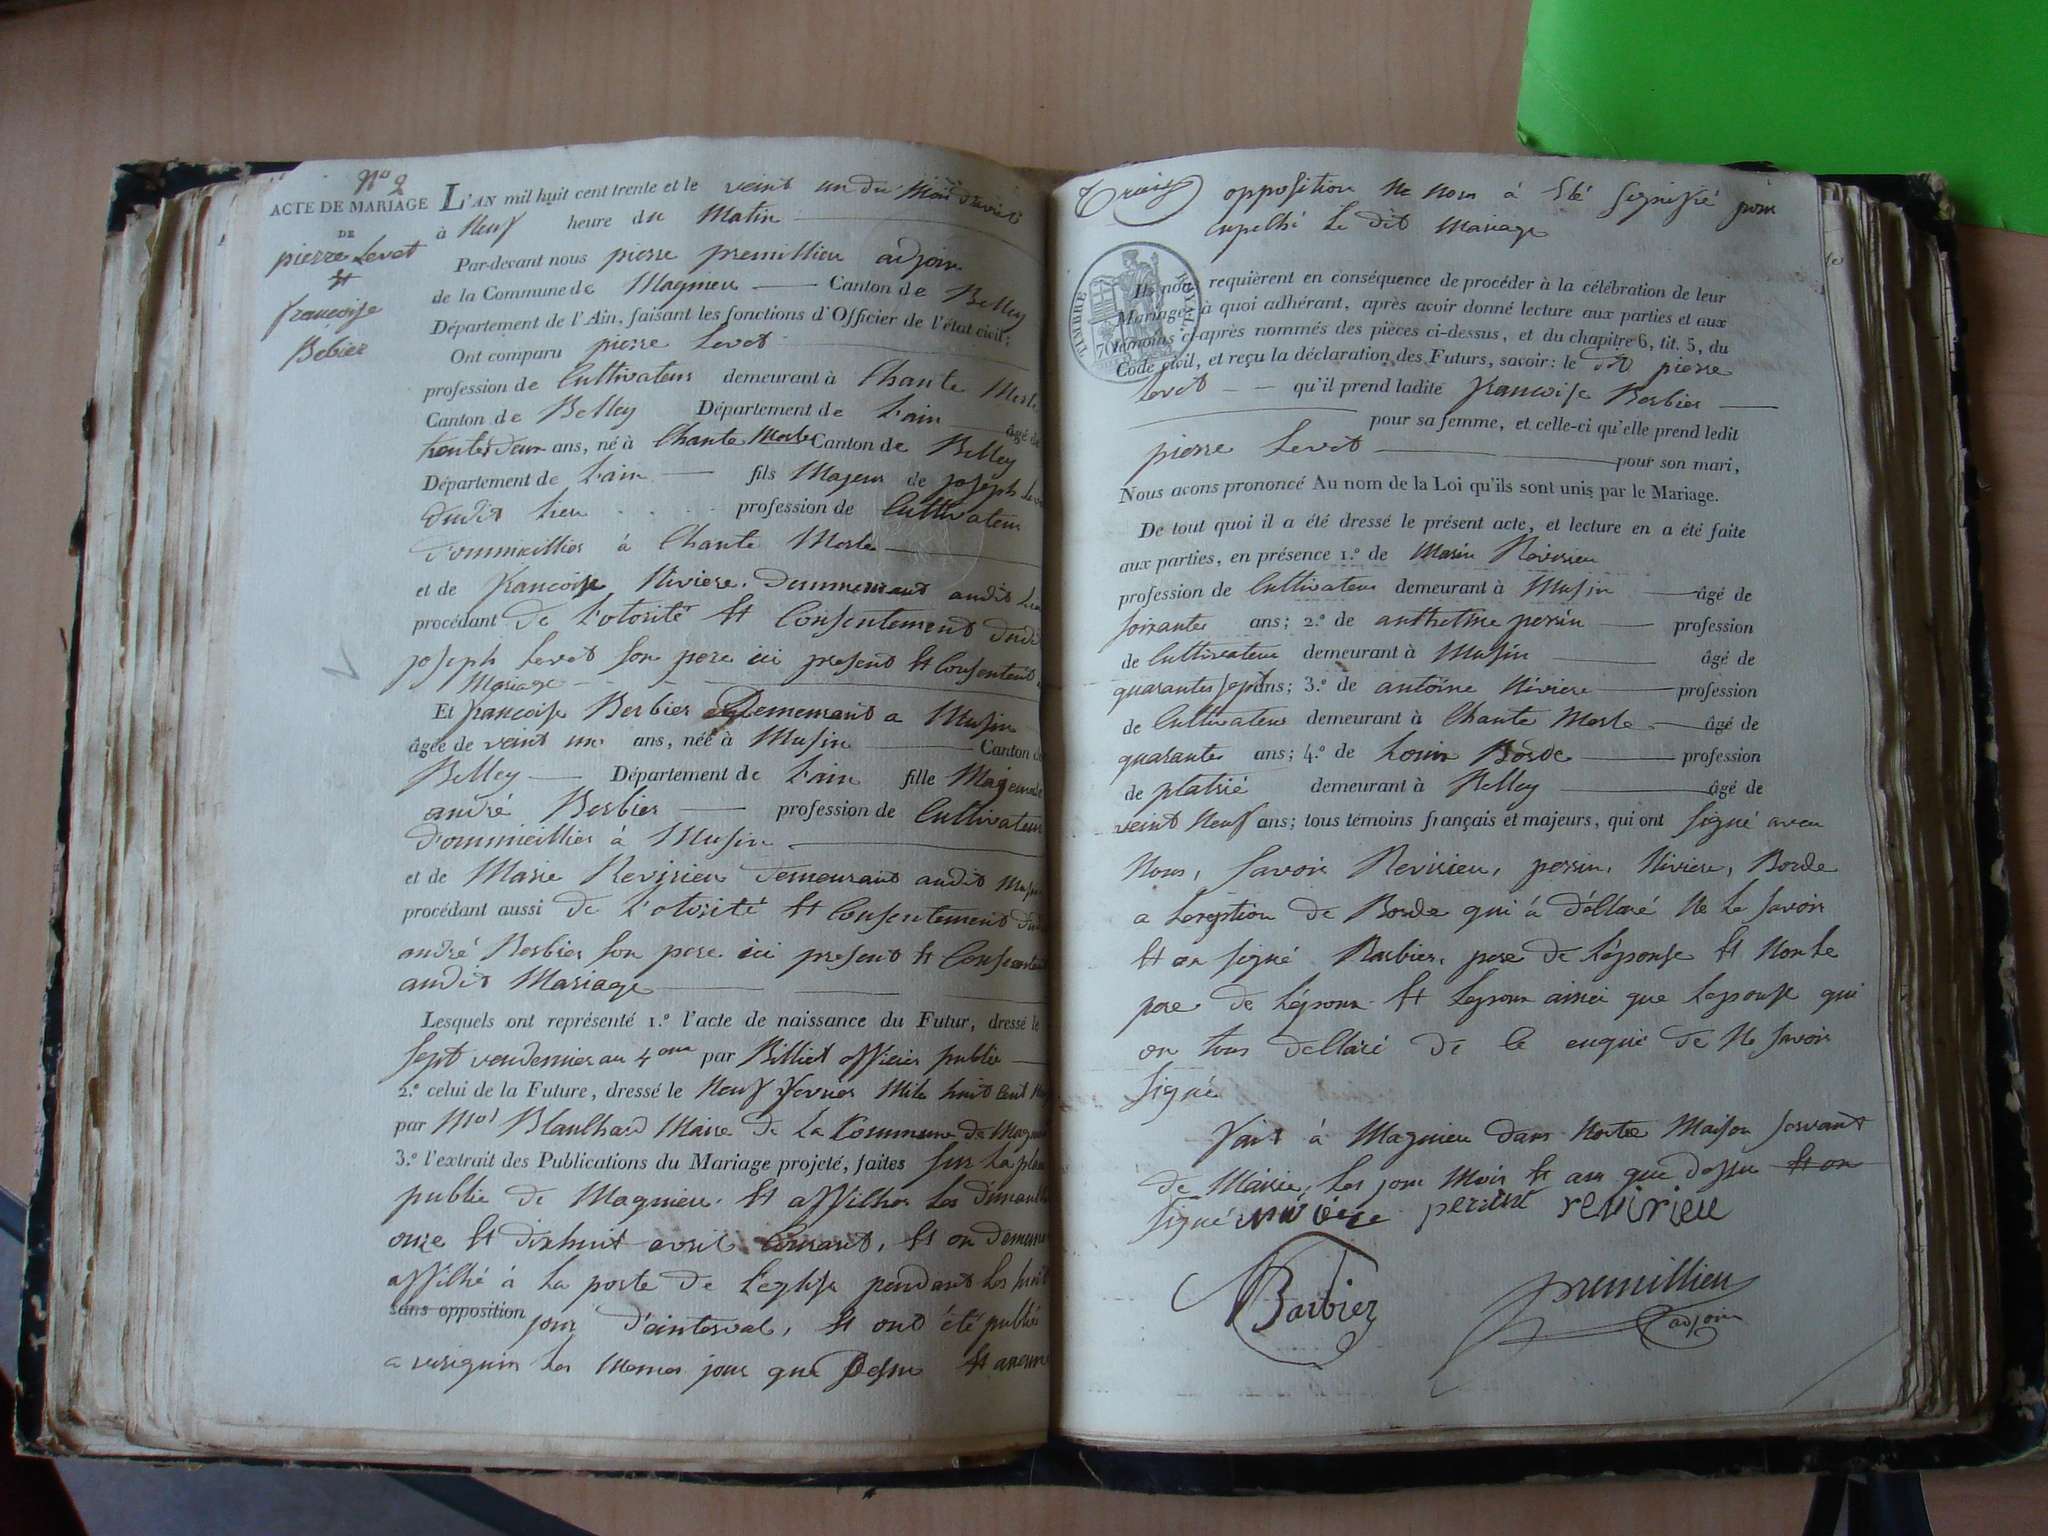 N° 2
ACTE DE MARIAGE
DE
pierre Levet
Et
francoise
Bebier
L'AN mil huit cent trente et le veint un du Moi d'avril
à Neuf heure du Matin
Par-devant nous pierre premillieu adjoin
de la Commune de Magnieu Canton de Belley
Département de l'Ain, faisant les fonctions d'Officier de l'état civil;
Ont comparu pierre Levet
profession de Cultivateur demeurant à Chante Merle
Canton de Belley Département de Lain âgé de
trentes deux ans, né à Chante Merle Canton de Belley
Département de Lain fils Majeur de joseph Levet
dudit lieu profession de Cultivateur
Dommicillier à Chante Merle
et de francoise Riviere Demmeurant audit Lieu
procédant de l'otorité Et Consentement dudit
joseph Levet son pere ici present Et Consentent
Mariage
Et francoise Berbier Demeurant a Musin
âgée de veint un ans, née à Musin Canton de
Belley Département de Lain fille Majeur de
andré Berbier profession de Cultivateur
Dommicillier à Musin
et de Marie Revirieu Demeurant audit Musin
procédant aussi de l'otorité Et Consentement dudit
andré Berbier son pere ici present Et Consentent
audit Mariage
Lesquels ont représenté 1.° l'acte de naissance du Futur, dressé le
sept vendemier an 4 par Billiet officier public
2.° celui de la Future, dressé le Neuf fevrier Mile huit Cent
par Blanchard Maire de La Commune de Magnieu
3.° l'extrait des Publications du Mariage projeté, faites sur La place
public de Magnieu Et affilher Les dimanche
onze Et dixhuit avril Courant, Et on demeuré
affilhé à La porte de l'eglise pendant Les huit
sans opposition jour d'einterval, Et ont été publié
a virignin Les Memes jour que Dessu Et aucune
opposition Ne nous à Eté signifié pour
enpelhé Le dit Mariage
TIMBRE ROYAL
70
Ils nous requièrent en conséquence de procéder à la célébration de leur
Mariage; à quoi adhérant, après avoir donné lecture aux parties et aux
témoins ci-après nommés des pièces ci-dessus, et du chapitre 6, tit. 5, du
Code civil, et reçu la déclaration des Futurs, savoir: le dit pierre
Levet qu'il prend ladite francoise Berbier
pour sa femme, et celle-ci qu'elle prend ledit
pierre Levet pour son mari,
Nous avons prononcé Au nom de la Loi qu'ils sont unis par le Mariage.
De tout quoi il a été dressé le présent acte, et lecture en a été faite
aux parties, en présence 1.° de Marin Revirieu
profession de Cultivateur demeurant à Musin âgé de
soixantes ans; 2.° de anthelme perrin profession
de Cultivateur demeurant à Musin âgé de
quarantes sept ans; 3.° de antoine Riviere profession
de Cultivateur demeurant à Chante Merle âgé de
quarantes ans; 4.° de Louis Borde profession
de platrié demeurant à Belley âgé de
veint Neuf ans; tous témoins français et majeurs, qui ont signé avec
Nous, savoir Revirieu, perrin, Riviere, Borde
a Lexeption de Borde qui à déllaré Ne Le savoir
Et on signé Barbier, pere de l'éponse Et Non Le
pere de l'époux Et Lepoux ainci que Lepouse qui
on tous dellaré de ce enquie de Ne savoir
signé
Fait à Magnieu dans Notre Maison servant
de Mairie, Les jour Mois Et an que dessu Et on
signé rivière perrin revirieu
Barbier premillieu
adjoin